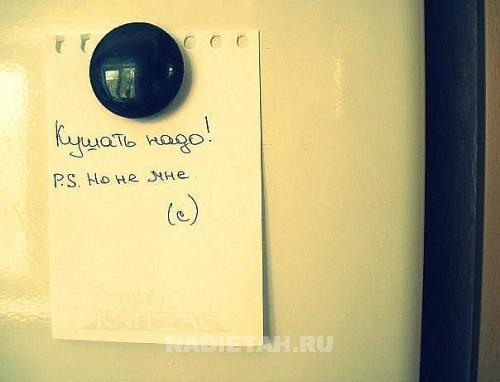 Кушать надо!
P.S. Но не мне
(с)
NADIETAH.RU